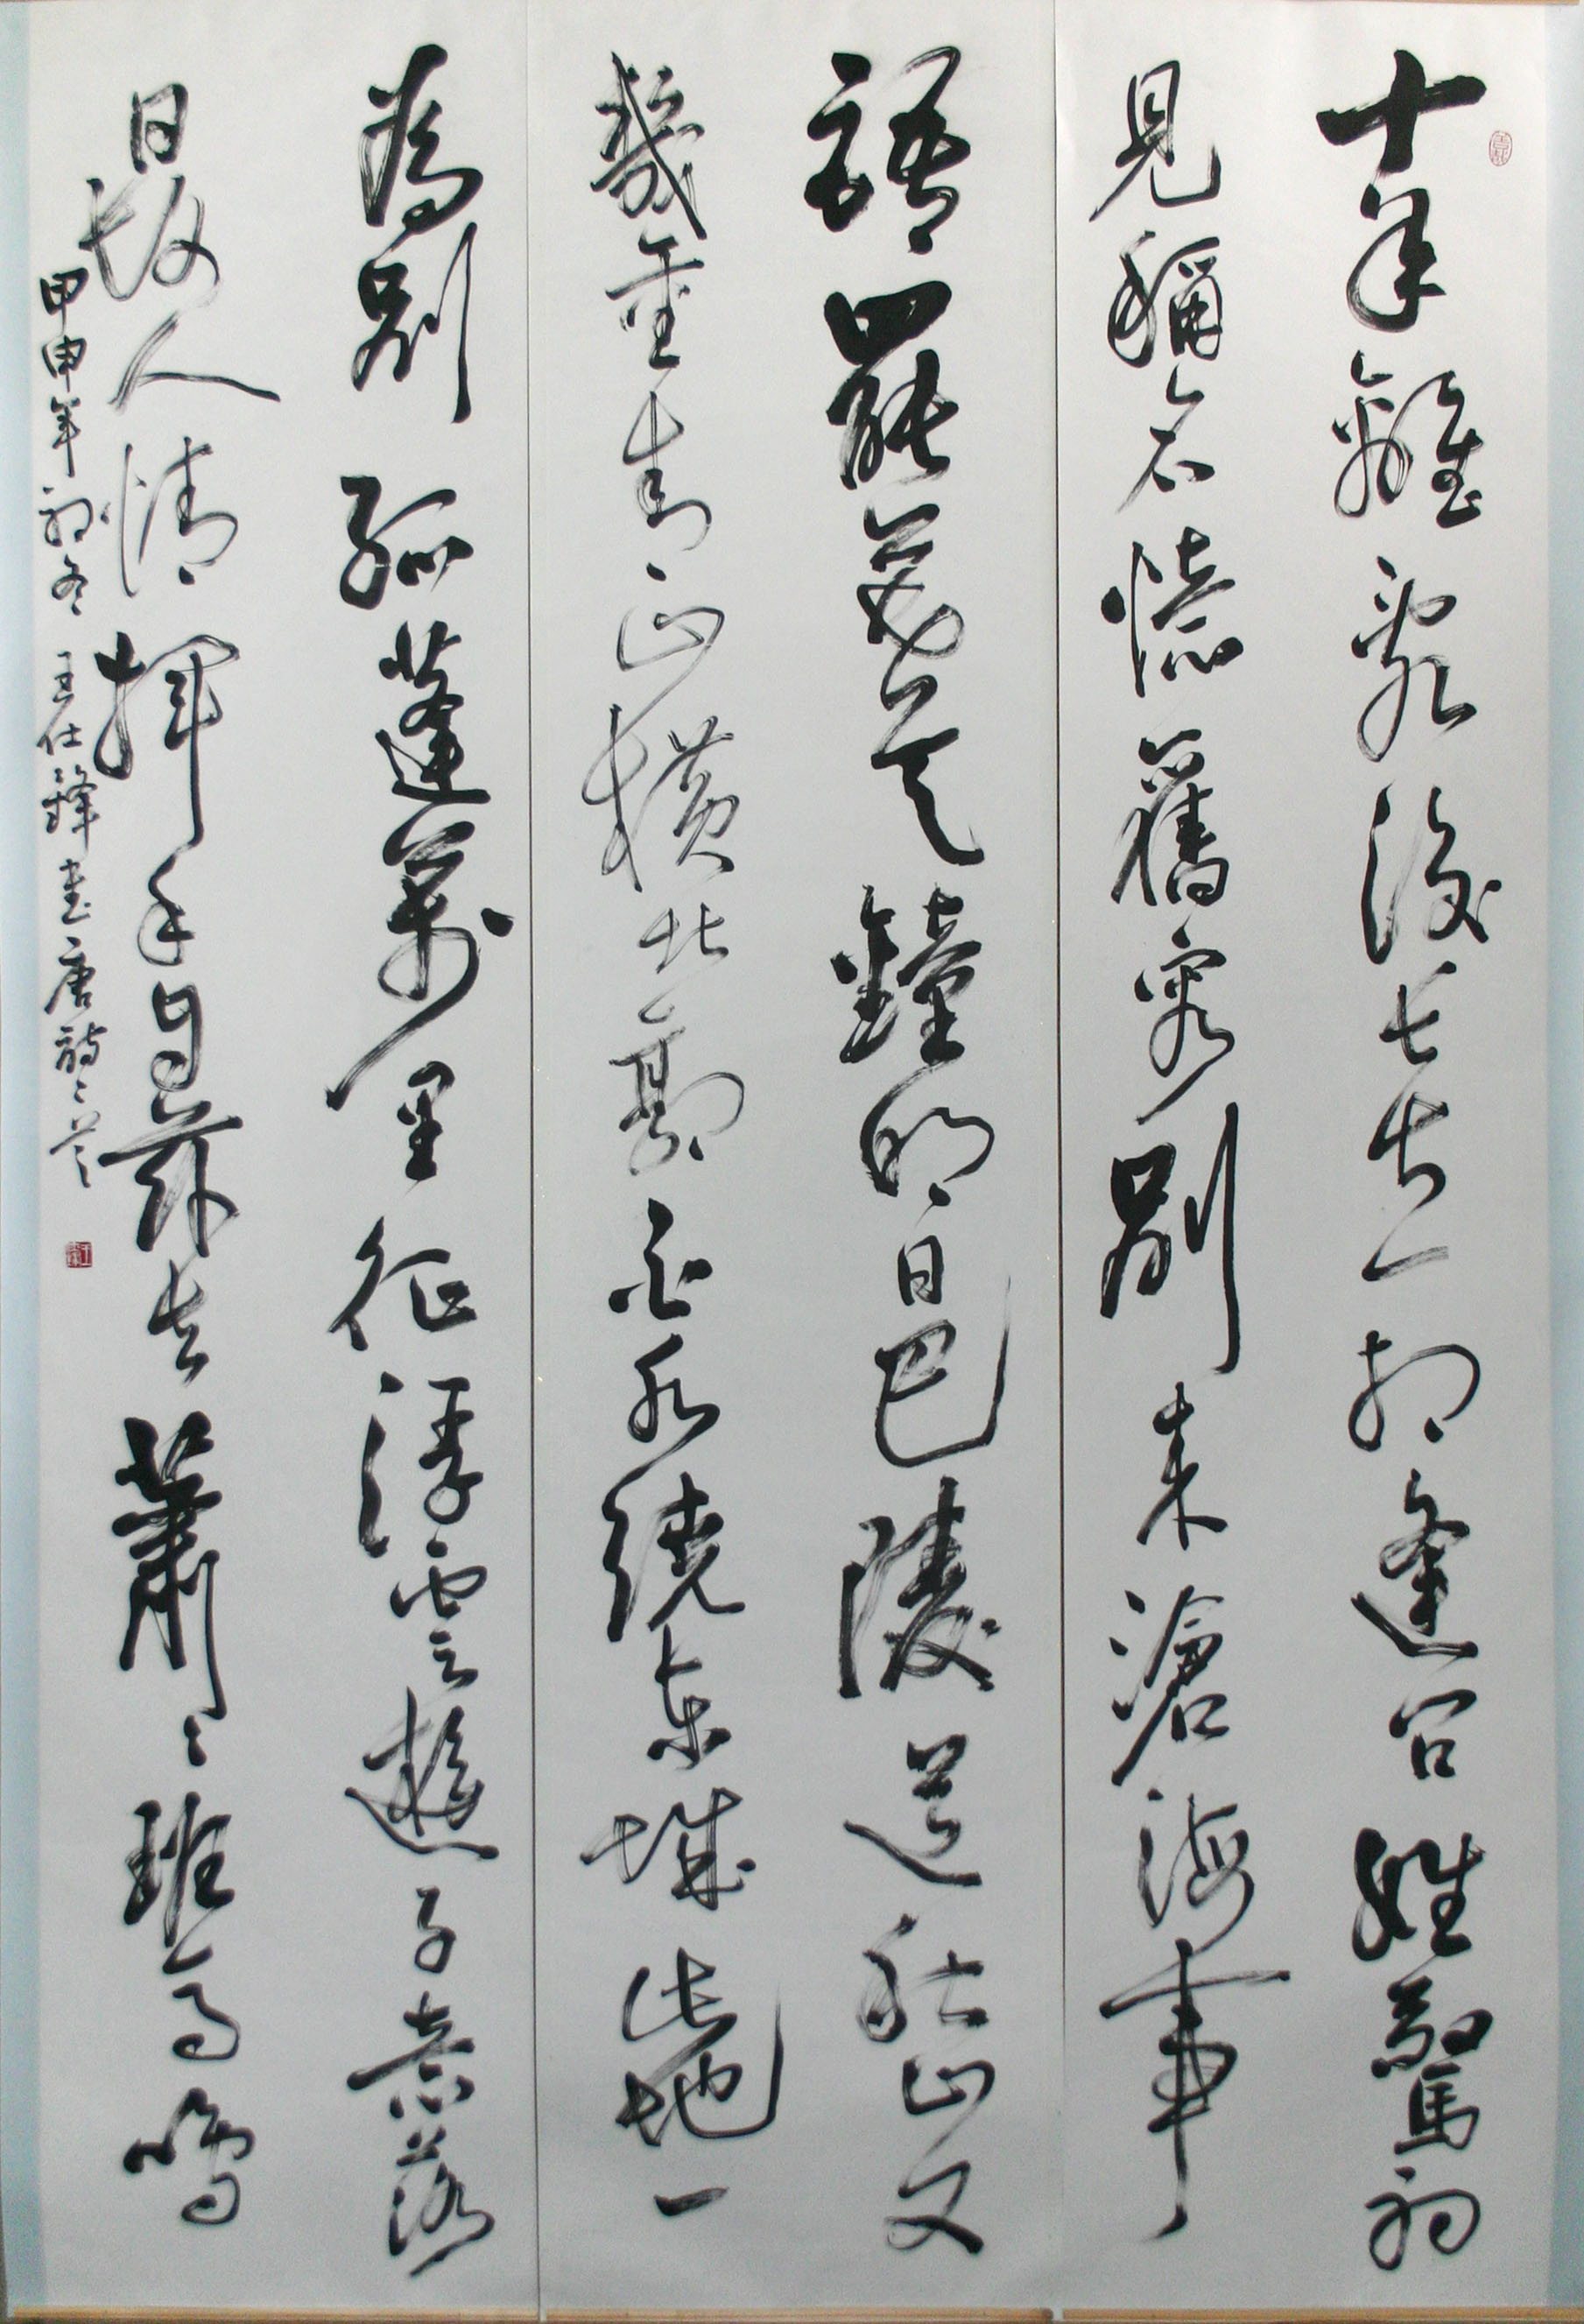 十年離亂後長大一相逢问姓驚初
見稱名憶舊容別來滄海事
語罷暮天鐘明日巴陵道秋山又
幾重青山橫北郭白水繞東城此地一
為別孤蓬萬里征浮雲遊子意落
日故人情揮手自茲去蕭々班馬鳴
甲申年初冬王仕鋒書唐詩二首